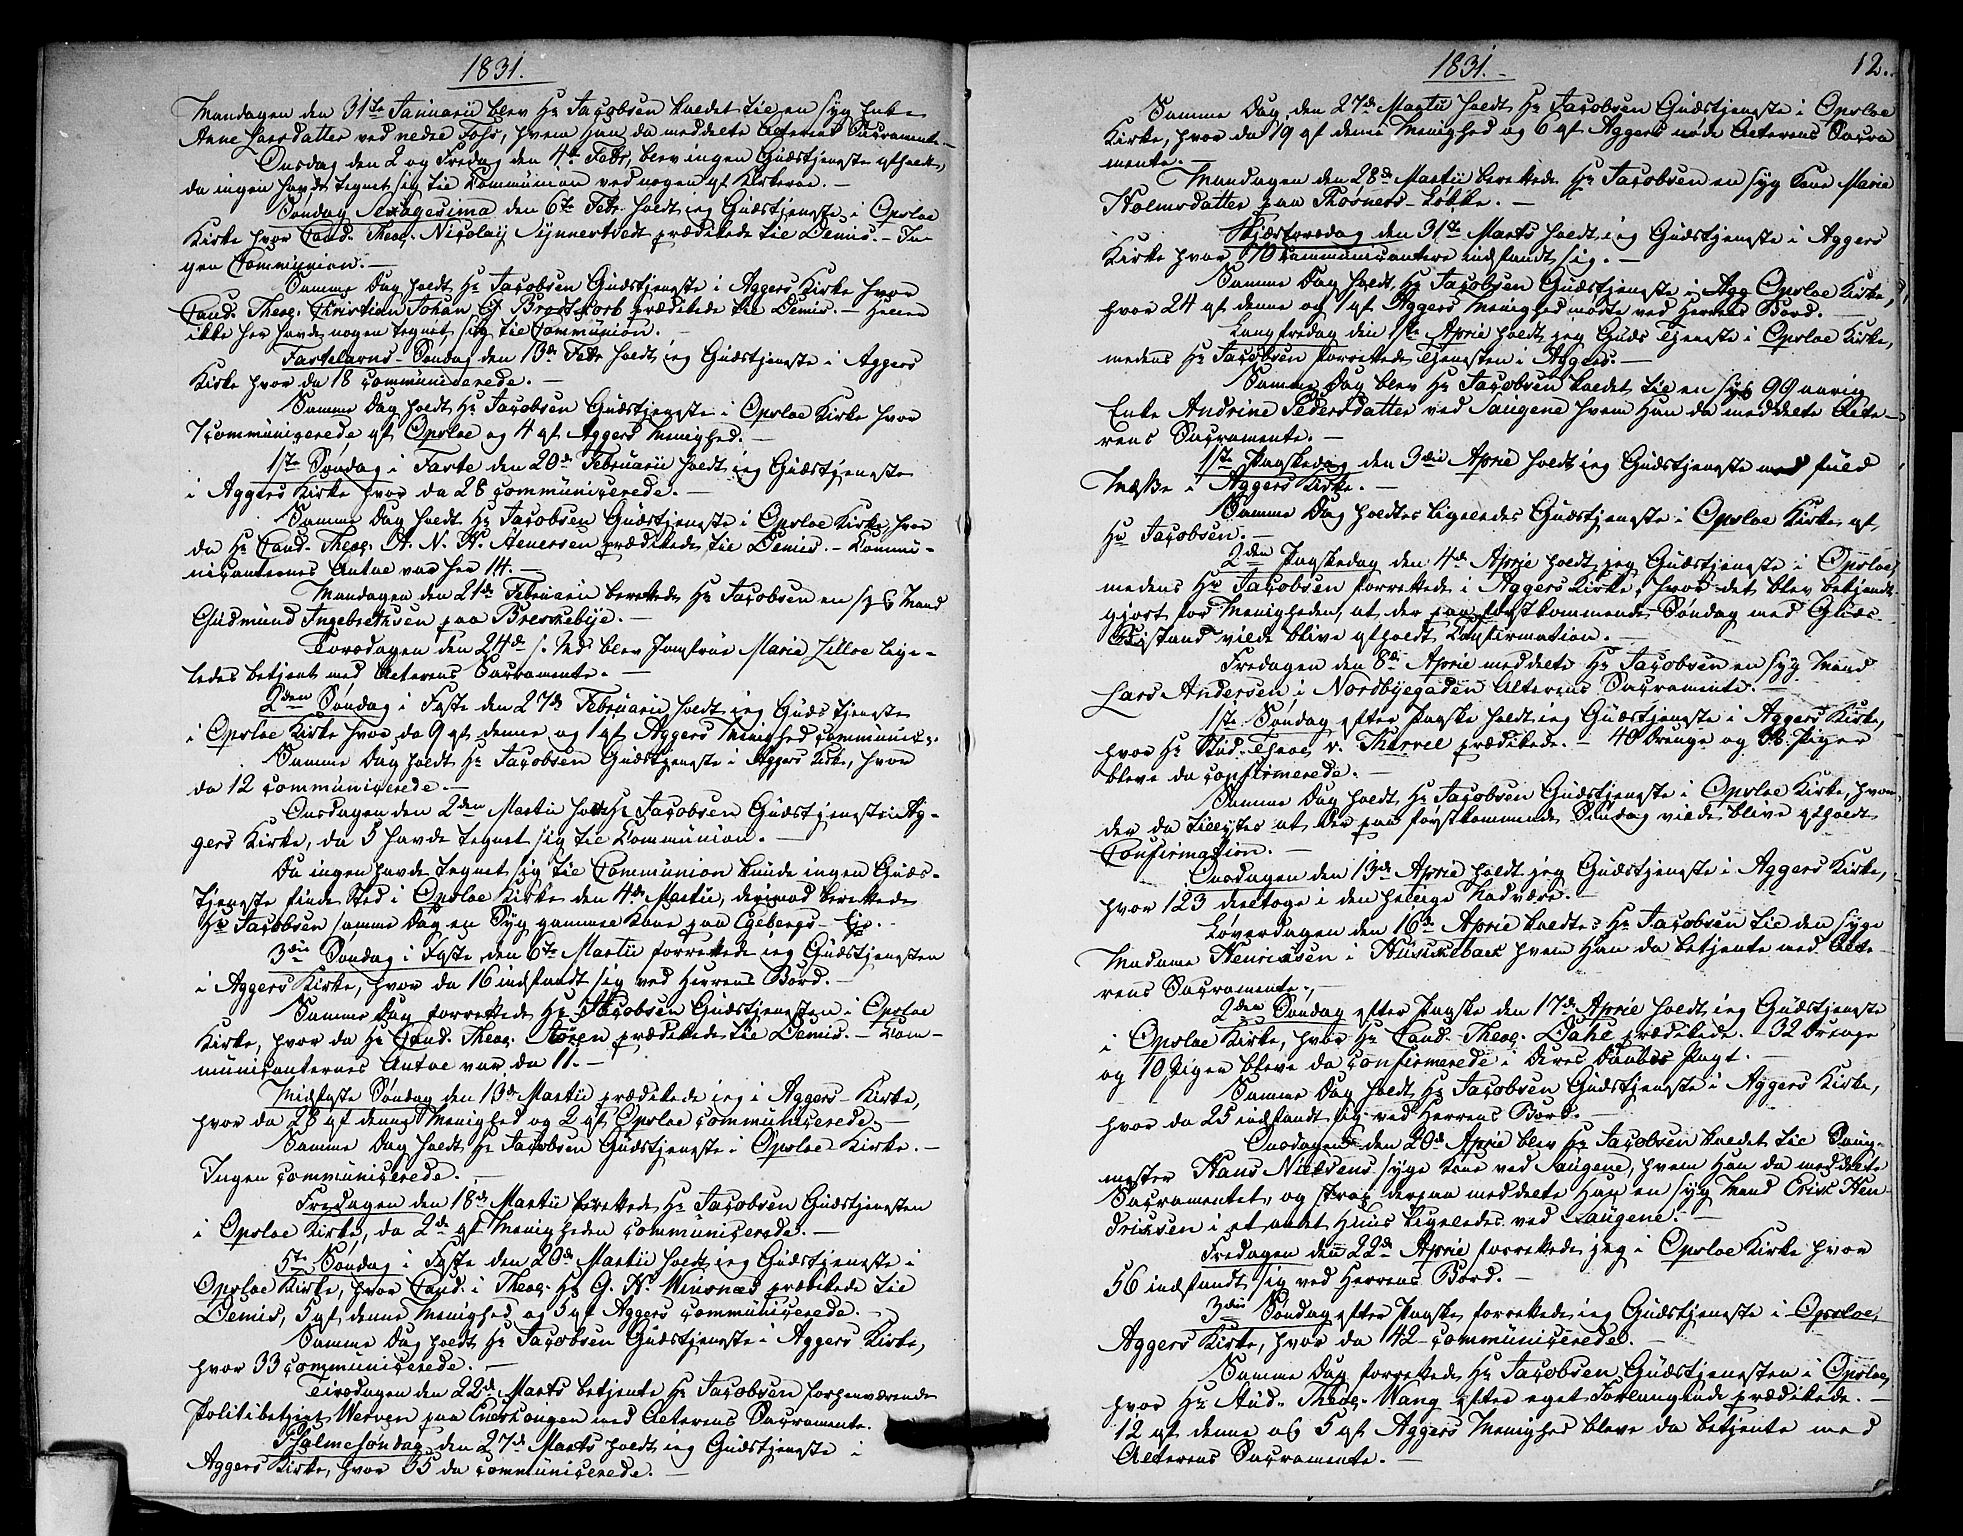 1831.
Mandagen den 31te Januarii blev Hr Jacobsen kaldet til en syg Enke
Anne Larsdatter ved nedre Foss, hvem han da meddelte Alterens Sacramente. –
Onsdag den 2 og Fredag den 4de Febr. blev ingen Gudstjeneste afholdt,
da ingen havde tegnet sig til Communion ved nogen af Kirkerne. –
Søndag Sexagesima den 6te Febr. holdt jeg Gudstjeneste i Opsloe
Kirke hvor Cand. Theol. Nicolaij Synnestvedt prædikede til Demis. – In-
gen Communion. –
Samme Dag holdt Hr Jacobsen Gudstjeneste i Aggers Kirke hvor
Cand. Theol. Christian Johan G. Brodtkorb prædikede til Demis. – Heller
ikke her havde nogen tegnet sig til Communion. –
Fastelavns-Søndag den 13de Febr. holdt jeg Gudstjeneste i Aggers
Kirke hvor da 18 communicerede. –
Samme Dag holdt Hr Jacobsen Gudstjeneste i Opsloe Kirke hvor
7 communicerede af Opsloe og 4 af Aggers Menighed. –
1ste Søndag i Faste den 20de Februarii holdt jeg Gudstjeneste
i Aggers Kirke hvor da 28 communicerede. –
Samme Dag holdt Hr Jacobsen Gudstjeneste i Opsloe Kirke, hvor
da Hr Cand. Theol. A. N. H. prædikede til Demis. – Commu-
nicanternes Antal var her 14. –
Mandagen den 21de Februarii berettede Hr Jacobsen en syg Mand
Gudmund Ingebrethsen paa Breschebye. –
Torsdagen den 24de s. Md. blev Jomfrue Marie Lilloe lige-
ledes betjent med Alterens Sacramente. –
2den Søndag i Faste den 27de Februarii holdt jeg Gudstjeneste
i Opsloe Kirke hvor da 9 af denne og 1 af Aggers Menighed communic:
Samme Dag holdt Hr Jacobsen Gudstjeneste i Aggers Kirke, hvor
da 12 communicerede. –
Onsdagen den 2den Martii holdt Hr Jacobsen Gudstjeneste i Ag-
gers Kirke, da 5 havde tegnet sig til Communion. –
Da ingen havde tegnet sig til Communion kunde ingen Guds-
tjeneste finde Sted i Opsloe Kirke den 4de Martii, derimod berettede
Hr Jacobsen samme Dag en Syg gammel Kone paa Egebergs-Eje. –
3die Søndag i Faste den 6te Martii forrettede jeg Gudstjenesten
i Aggers Kirke, hvor da 16 indfandt sig ved Herrens Bord. –
Samme Dag forrettede Hr Jacobsen Gudstjenesten i Opsloe
Kirke, hvor da Hr Cand. Theol. Støren prædikede til Demis. – Com-
municanternes Antal var da 11. –
Midfaste Søndag den 13de Martii prædikede jeg i Aggers-Kirke,
hvor da 28 af denne Menighed og 2 af Opsloe communicerede. –
Samme Dag holdt Hr Jacobsen Gudstjeneste i Opsloe-Kirke. –
Ingen communicerede. –
Fredagen den 18de Martii forrettede Hr Jacobsen Gudstjenesten
i Opsloe Kirke, da 2de af Menigheden communicerede. –
5te Søndag i Faste den 20de Martii holdt jeg Gudstjeneste i
Opsloe Kirke, hvor Cand. i Theol. Hr G. H. Winsnæs prædikede til
Demis, 5 af denne Menighed og 3 af Aggers communicerede. –
Samme Dag holdt Hr Jacobsen Gudstjeneste i Aggers Kirke,
hvor 33 communicerede. –
Tirsdagen den 22de Marts betjente Hr Jacobsen forhenværende
Politibetjent Werven paa Enerhougen med Alterens Sacramente.
Palmesøndag den 27de Marts holdt jeg Gudstjeneste i
Aggers Kirke, hvor 35 da communicerede. –
1831. –
12.
Samme Dag den 27de Martii holdt Hr Jacobsen Gudstjeneste i Opsloe
Kirke, hvor da 19 af denne Menighed og 6 af Aggers nøde Alterens Sacra
mente. –
Mandagen den 28de Martii berettede Hr Jacobsen en syg Kone Marie
Holmsdatter paa Thosners-Løkke. –
Skjærtorsdag den 31te Marts holdt jeg Gudstjeneste i Aggers
Kirke hvor 70 Communicantere indfandt sig. –
Samme Dag holdt Hr Jacobsen Gudstjeneste i Agg Opsloe Kirke,
hvor 24 af denne og 1 af Aggers Menighed mødte ved Herrens Bord. –
Langfredag den 1ste April holdt jeg Guds Tjeneste i Opsloe Kirke,
medens Hr Jacobsen forrettede Tjenesten i Aggers. –
Samme Dag blev Hr Jacobsen kaldet til en syg 99 aarig
Enke Andrine Pedersdatter ved Saugene hvem han da meddelte Alte-
rens Sacramente. –
1ste Paaskedag den 3die April holdt jeg Gudstjeneste med fuld
Messe i Aggers Kirke. –
Samme Dag holdtes ligeledes Gudstjeneste i Opsloe Kirke af
Hr Jacobsen. –
2den Paaskedag den 4de April holdt jeg Gudstjeneste i Opsloe,
medens Hr Jacobsen forrettede i Aggers Kirke, hvor det blev bekjendt-
gjort for Menigheden, at der paa førstkommende Søndag med Guds
Bistand vilde blive afholdt Confirmation. –
Fredagen den 8de April meddelte Hr Jacobsen en syg Mand
Lars Andersen i Nordbyegaden Alterens Sacramente. –
1ste Søndag efter Paaske holdt jeg Gudstjeneste i Aggers Kirke,
hvor Hr Stud. Theol. v. Tharvel prædikede. – 40 Drenge og 38 Piger
bleve da confirmerede. –
Samme Dag holdt Hr Jacobsen Gudstjeneste i Opsloe Kirke, hvor
der da tillystes at der paa førstkommende Søndag vilde blive afholdt
Confirmation. –
Onsdagen den 13de April holdt jeg Gudstjeneste i Aggers Kirke,
hvor 123 deeltoge i den hellige Nadvere. –
Løverdagen den 16de April kaldtes Hr Jacobsen til den syge
Madame Henrichsen i Kuskelbæk hvem han da betjente med Alte-
rens Sacramente. –
2den Søndag efter Paaske den 17de April holdt jeg Gudstjeneste
i Opsloe Kirke, hvor Hr Cand. Theol. Dahl prædikede. 32 Drenge
og 19 Piger bleve da confirmerede i Deres Daabes Pagt. –
Samme Dag holdt Hr Jacobsen Gudstjeneste i Aggers Kirke,
hvor da 25 indfandt sig ved Herrens Bord. –
Onsdagen den 20de April blev Hr Jacobsen kaldet til Saug-
mester Hans Nielsens syge Kone ved Saugene, hvem han da meddelte
Sacramentet, og strax derpaa meddelte han en syg Mand Erick Hen-
drichsen i et andet Huus ligeledes ved Saugene. –
Fredagen den 22de April forrettede jeg i Opsloe Kirke hvor
56 indfandt sig ved Herrens Bord. –
3die Søndag efter Paaske forrettede jeg Gudstjeneste i Opsloe,
Aggers Kirke, hvor da 42 communicerede. –
Samme Dag forrettede Hr Jacobsen Gudstjenesten i Opsloe,
hvor Hr Stud. Theol. Wang efter eget Forlangende prædikede. –
12 af denne og 5 af Aggers Menighed bleve da betjente med
Alterens Sacramente. –